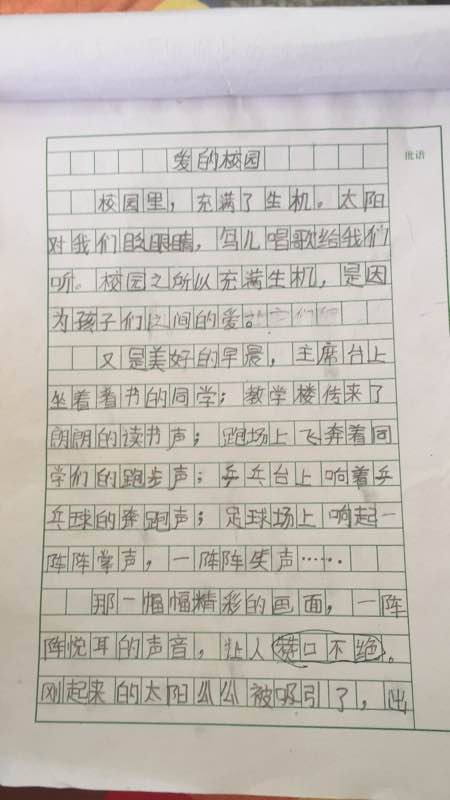 爱的校园
批语
校园里，充满了生机。太阳
对我们眨眼睛，鸟儿唱歌给我们
听。校园之所以充满生机，是因
为孩子们之间的爱。
又是美好的早晨，主席台上
坐着看书的同学；教学楼传来了
朗朗的读书声；跑场上飞奔着同
学们的跑步声；乒乓台上响着乒
乓球的奔跑声；足球场上响起一
阵阵掌声，一阵阵笑声……
那一幅幅精彩的画面，一阵
阵悦耳的声音，让人赞口不绝。
刚起来的太阳公公被吸引了，出